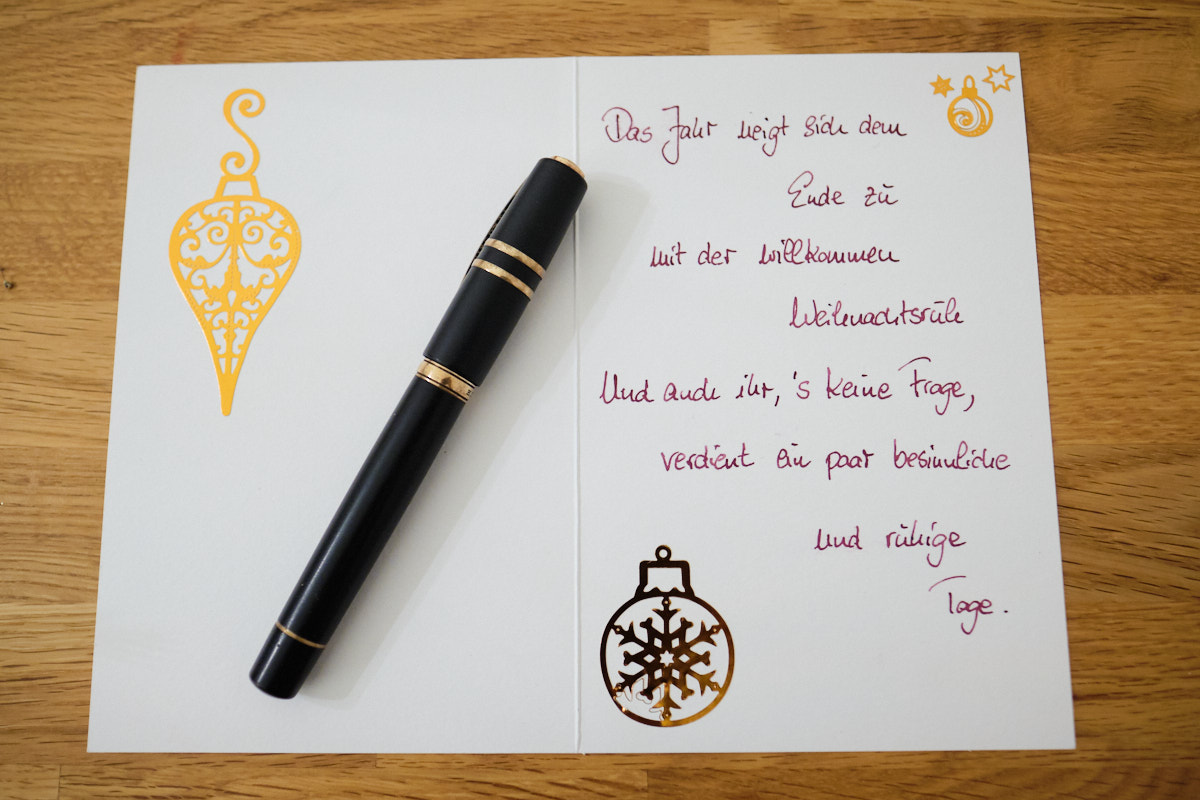 Das Jahr neigt sich dem
Ende zu
mit der willkommen
Weihnachtsruh
Und auch ihr, 's keine Frage,
verdient ein paar besinnliche
und ruhige
Tage.